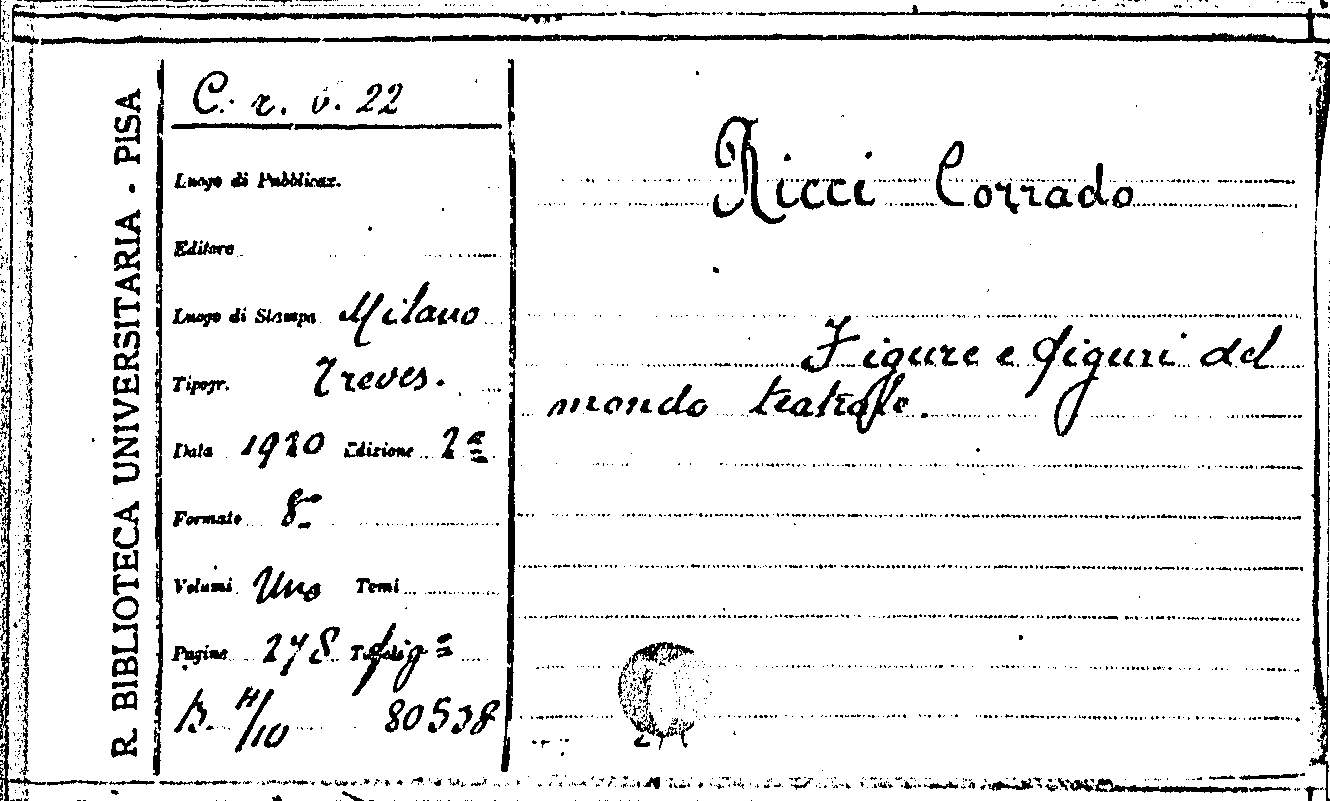 R. BIBLIOTECA UNIVERSITARIA - PISA
C. r. v. 22
Luogo di Pubblicaz.
Editore
Luogo di Stampa Milano
Tipogr. Treves.
Data 1920 Edizione 2ª
Formato 8º
Volumi Uno Tomi
Pagine 278 fig
B. H/10 80538
Ricci Corrado
Figure e figuri del
mondo teatrale.